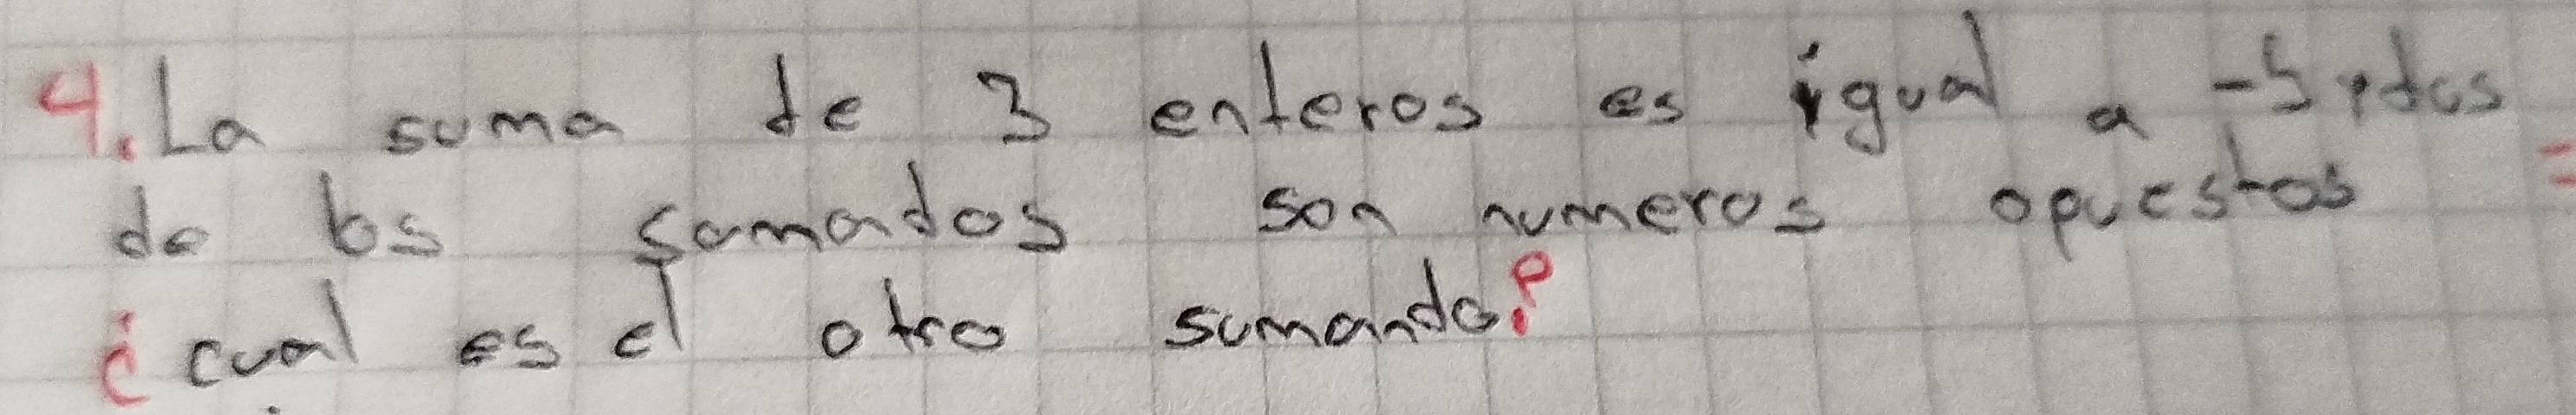 4. La suma de 3 enteros es igual a -5 y dos
de los sumandos son numeros opuestos =
¿cual es el otro sumando?